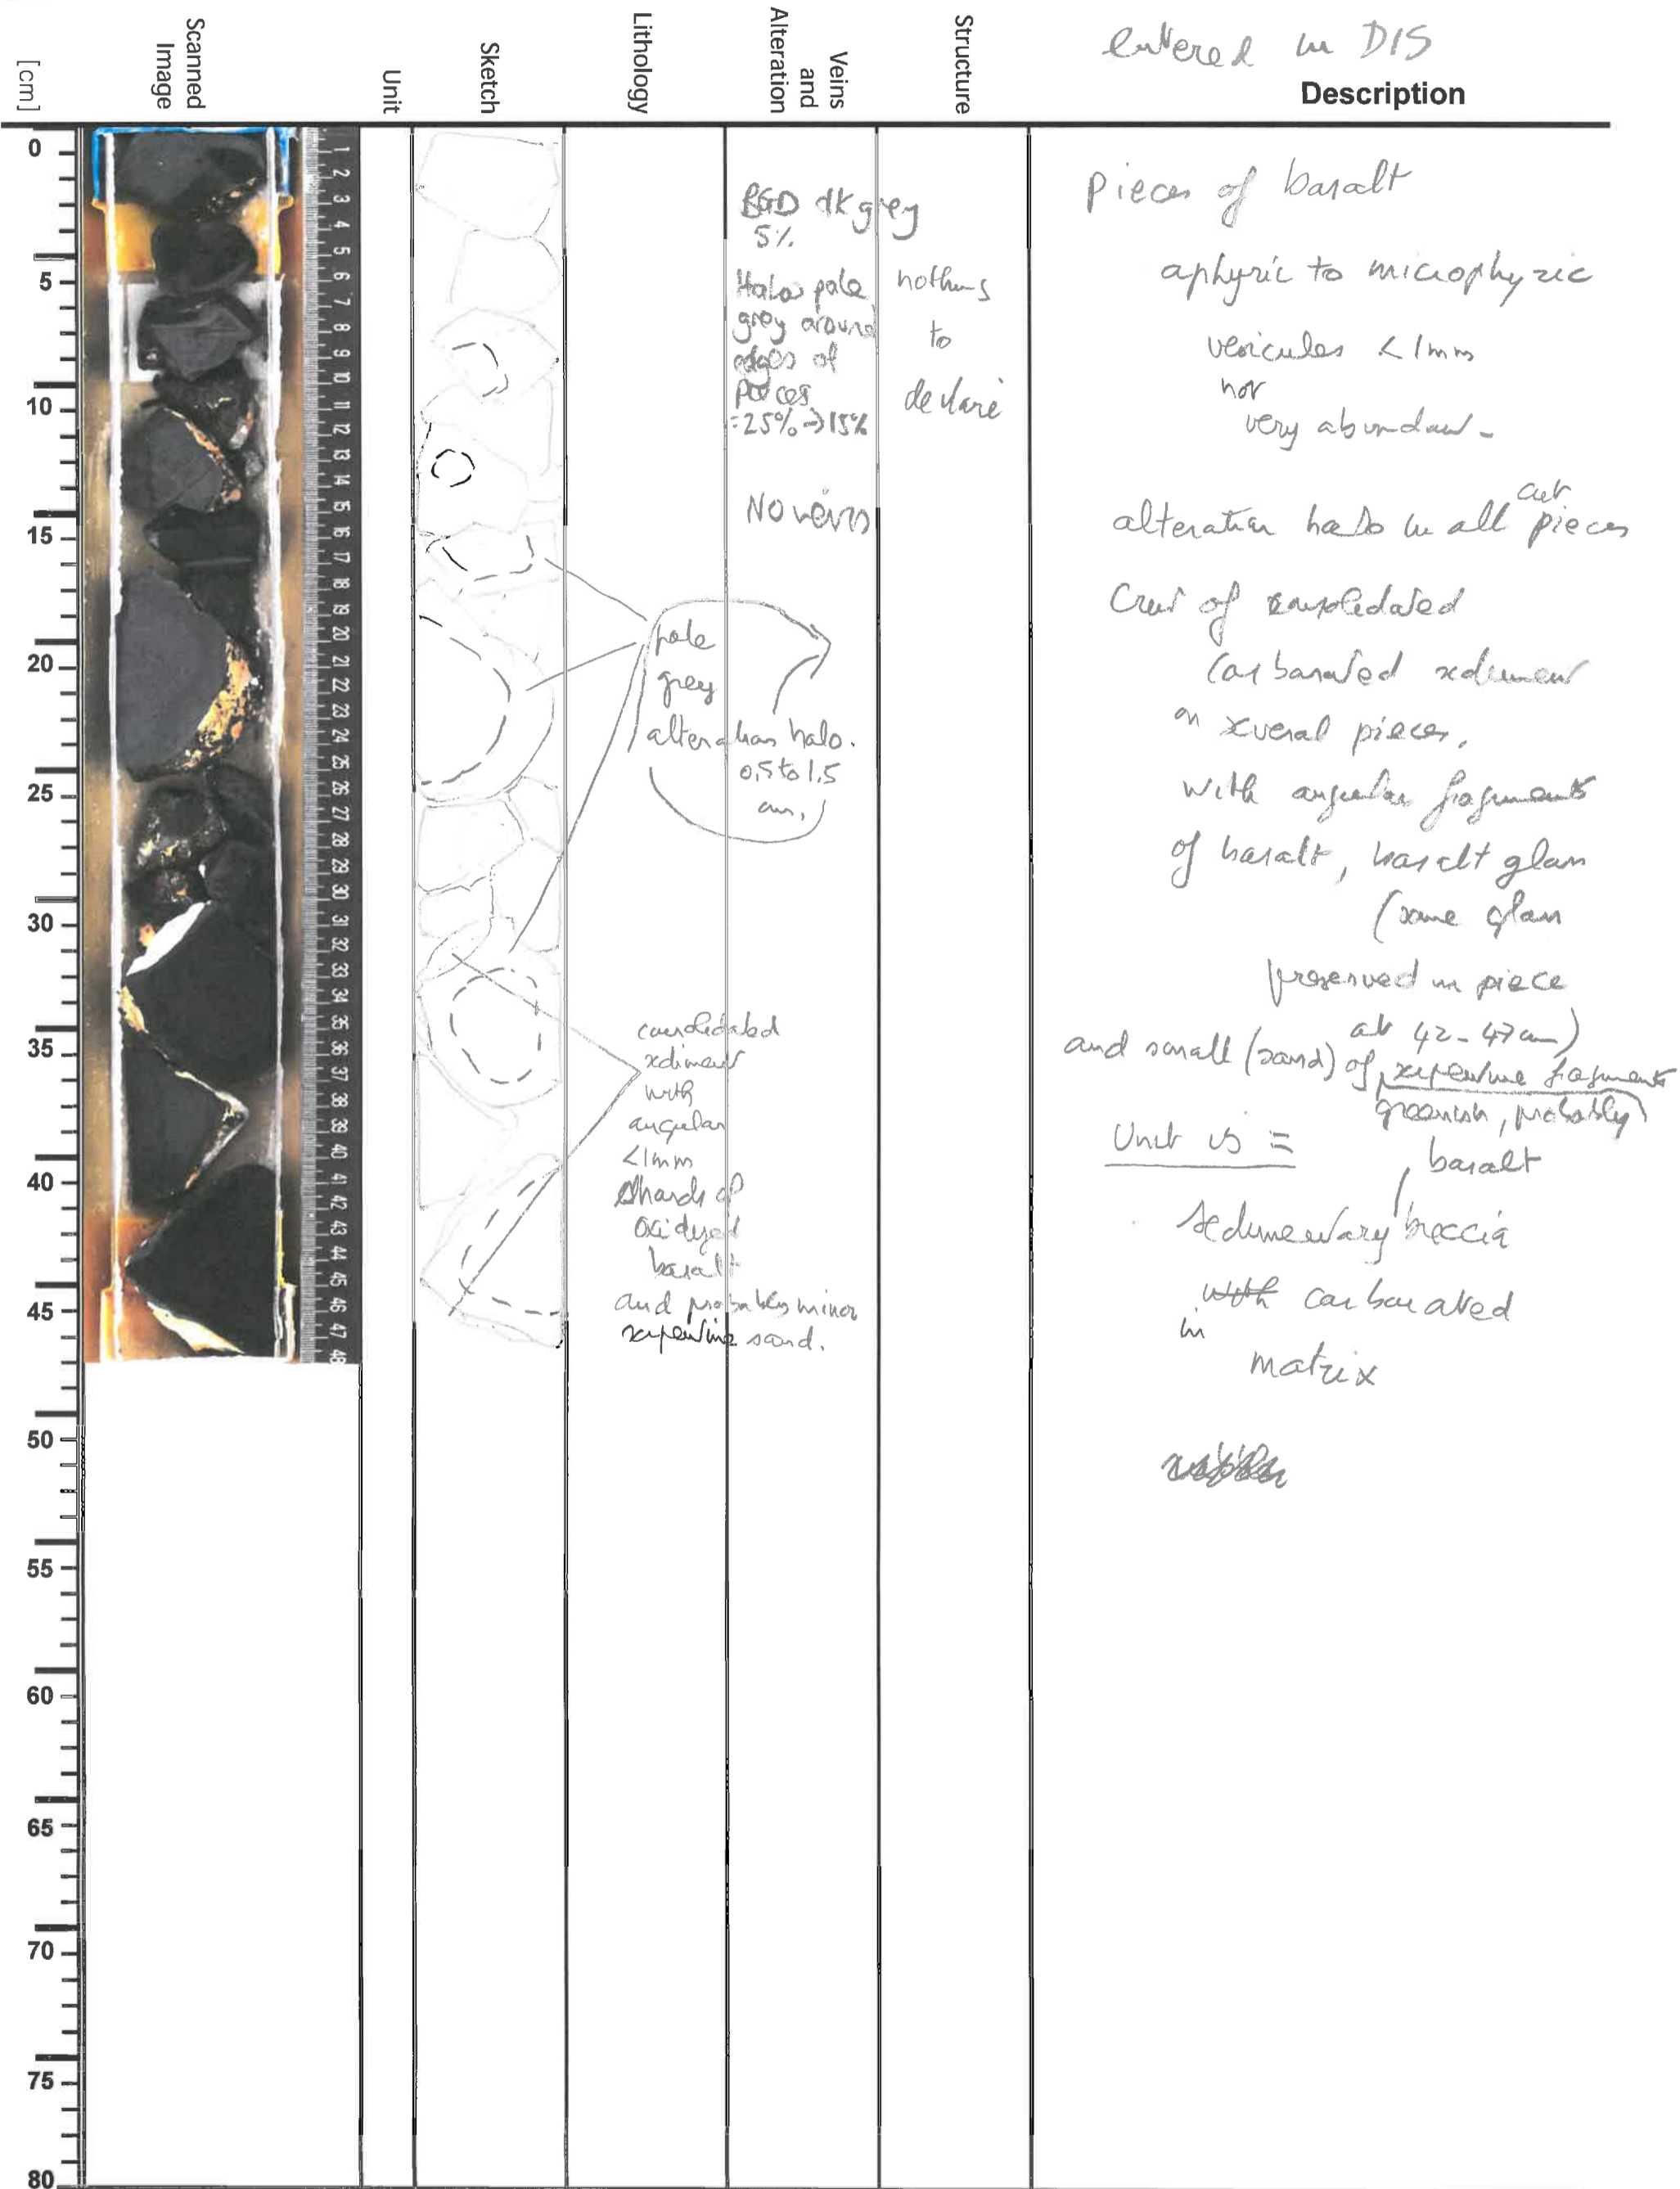 entered in DIS
[cm]
Scanned
Image
Unit
Sketch
Lithology
Veins
and
Alteration
Structure
Description
0
5
10
15
20
25
30
35
40
45
50
55
60
65
70
75
80
1
2
3
4
5
6
7
8
9
10
11
12
13
14
15
16
17
18
19
20
21
22
23
24
25
26
27
28
29
30
31
32
33
34
35
36
37
38
39
40
41
42
43
44
45
46
47
48
pale
grey
alteration halo.
0,5 to 1.5
cm,
consolidated
sediment
with
angular
<1mm
shards of
oxidyed
basalt
and probably minor
serpentine sand.
BGD dk grey
5%
Halos pale
grey around
edges of
pieces
=25%->15%
No veins
nothing
to
declare
pieces of basalt
aphyric to microphyric
vesicules <1mm
not
very abundant-
alteration halo in all cut pieces
Crust of consolidated
carbonated sediment
on several pieces,
with angular fragments
of basalt, basalt glass
(some glass
preserved in piece
at 42-47cm)
and small (sand) of serpentine fragments
greenish, probably)
Unit is =
basalt
sedimentary breccia
with carbonated
in
matrix